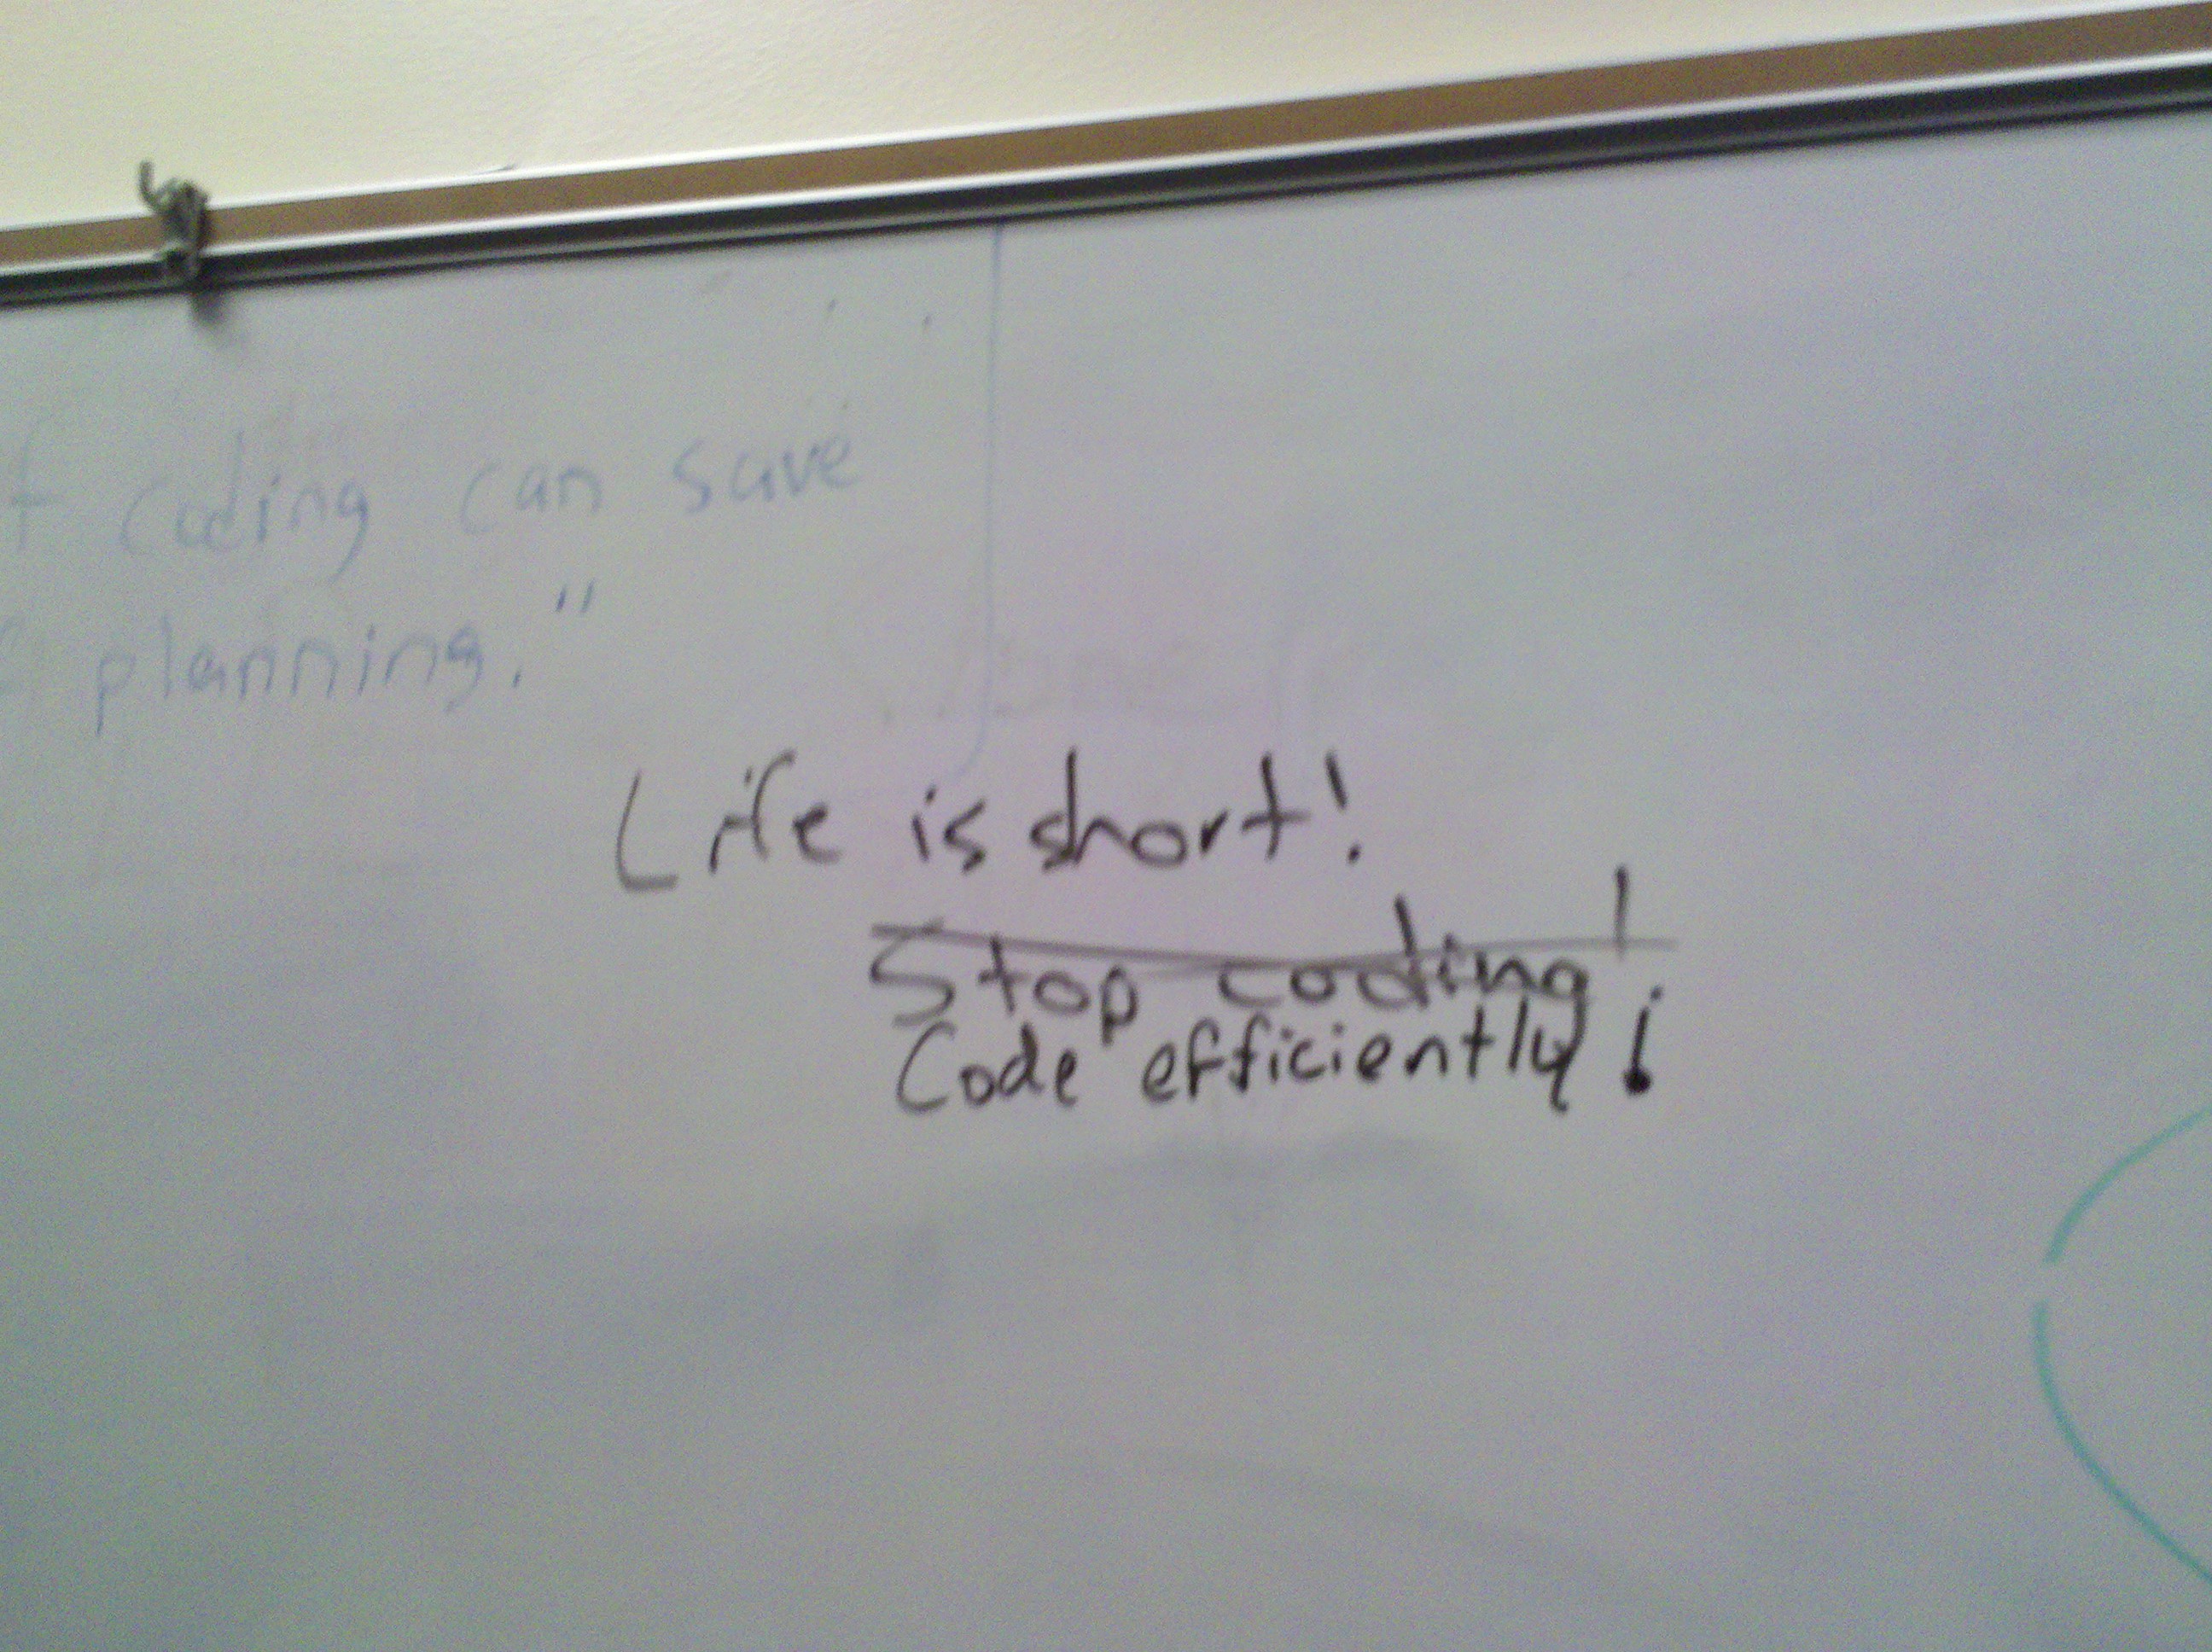 coding can save
planning."
Life is short!
Stop coding!
Code efficiently!